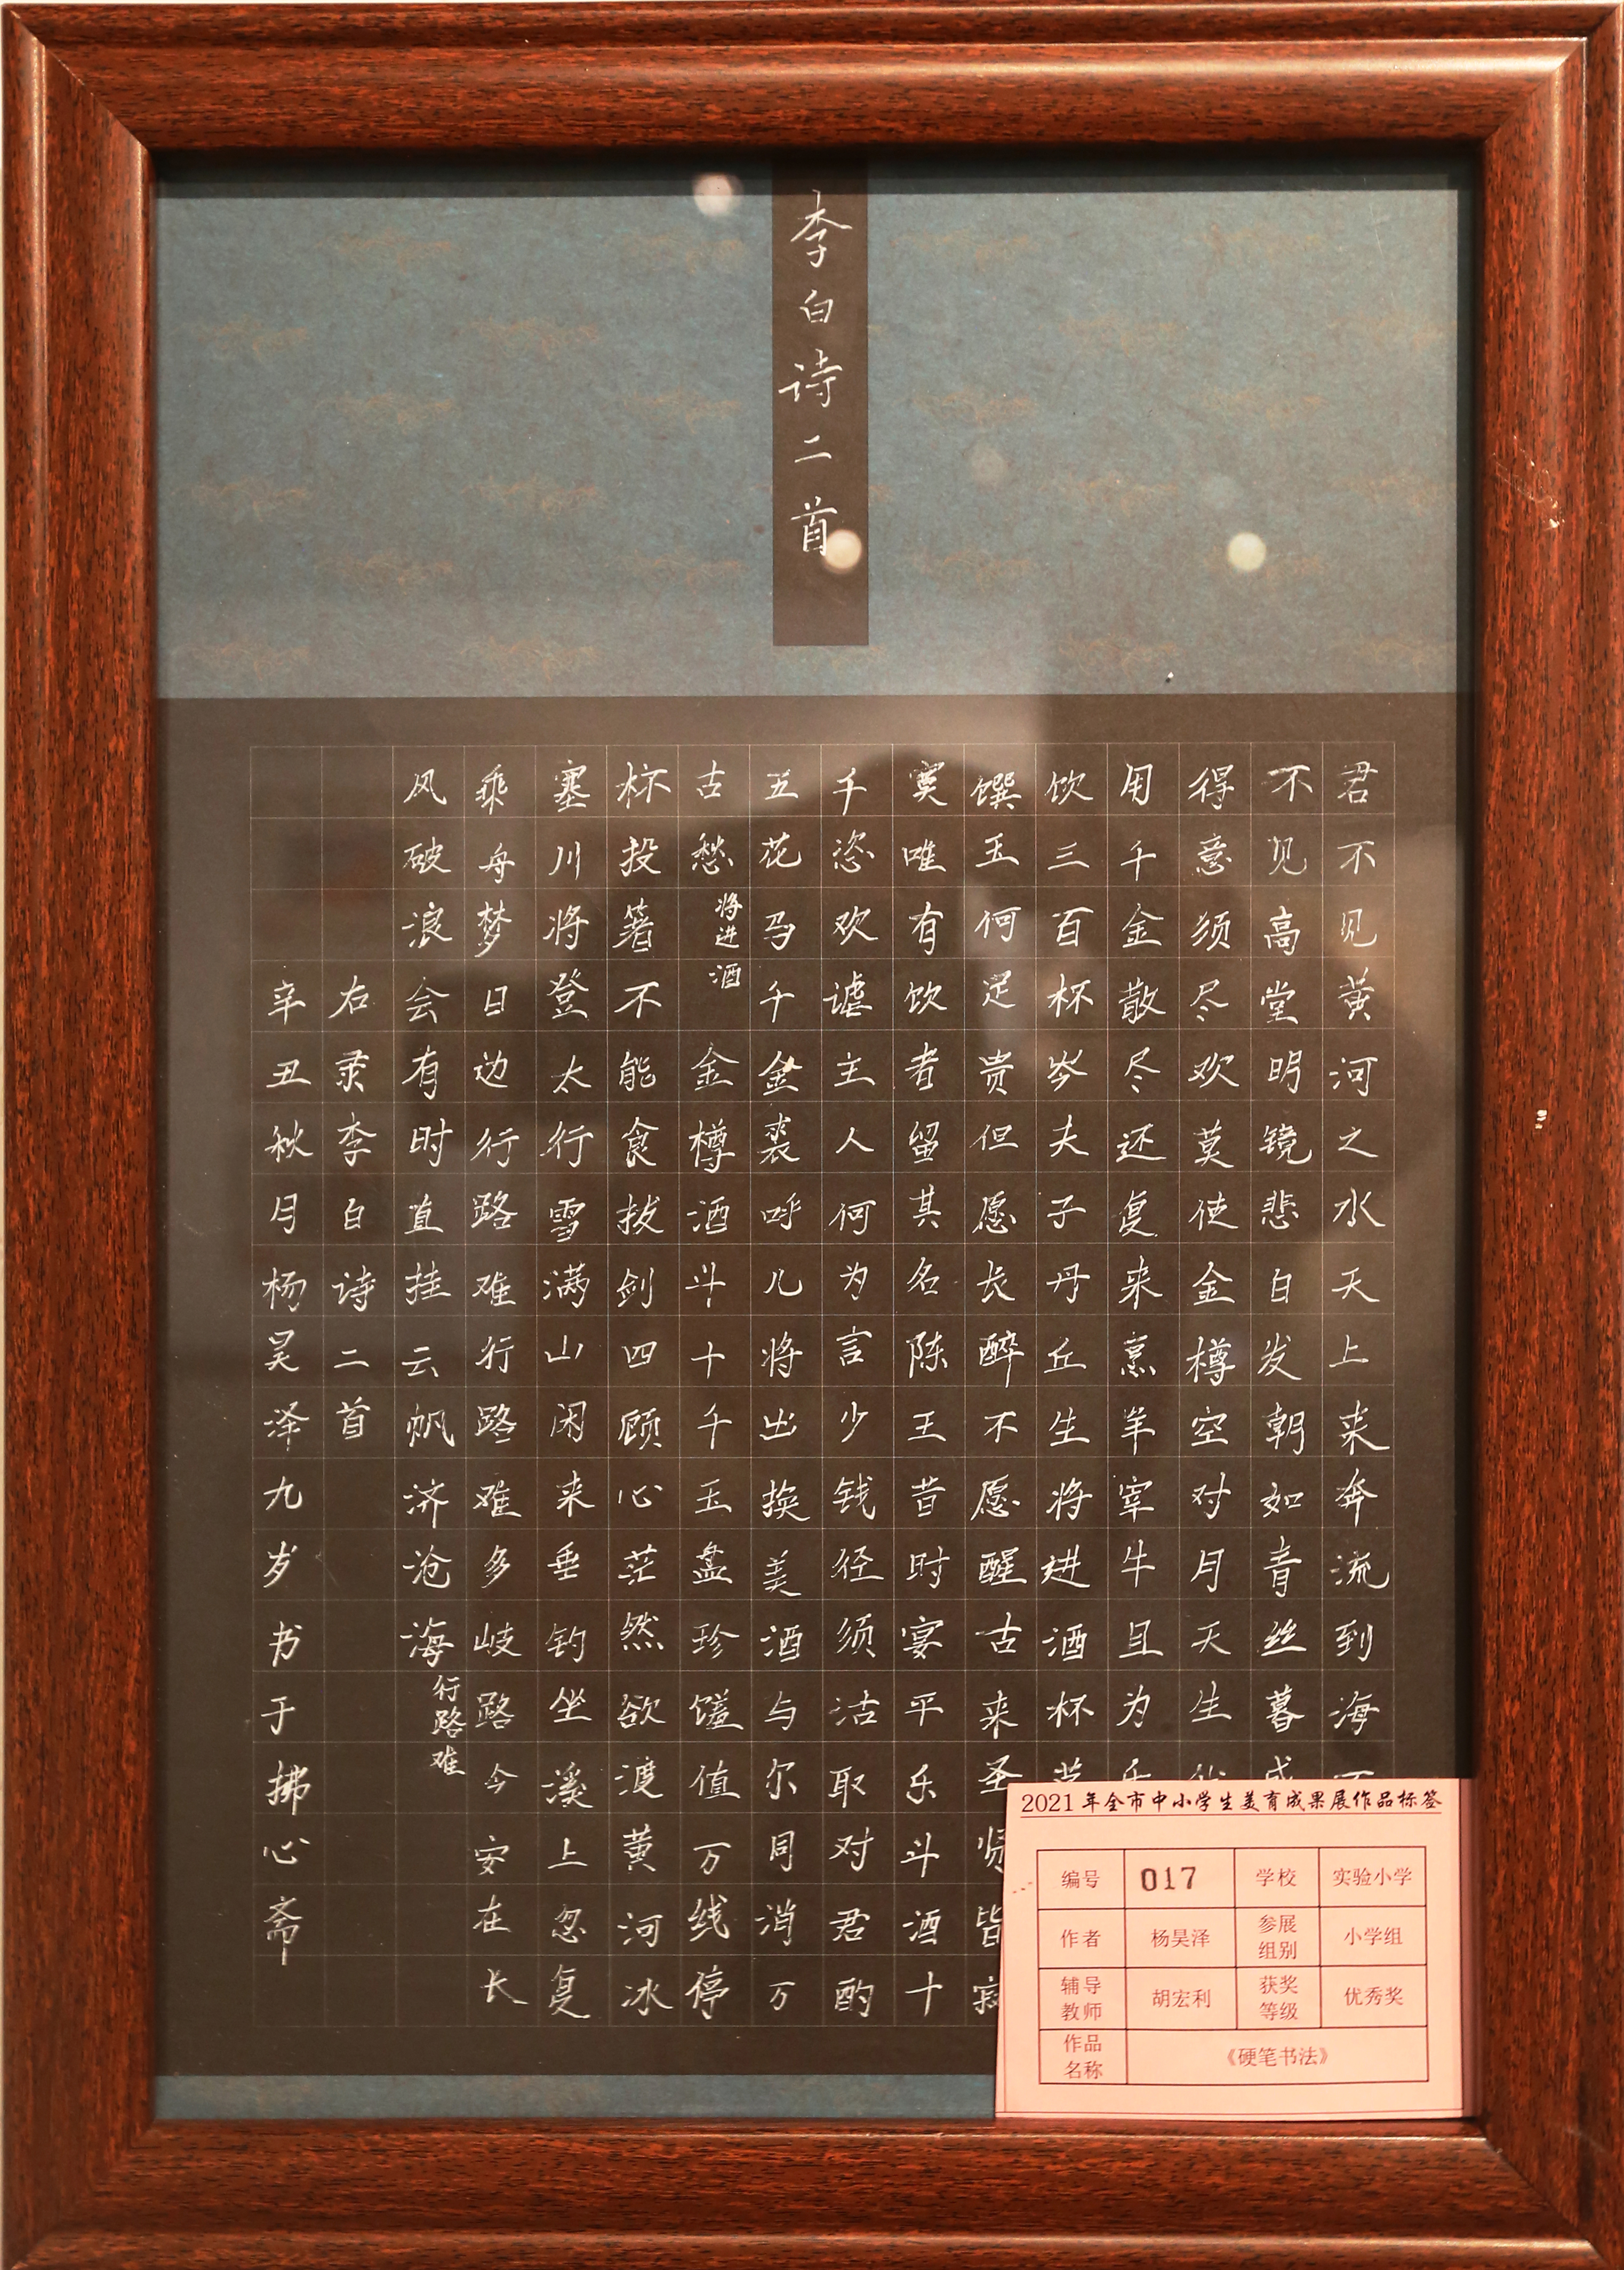 李白诗二首
君不见黄河之水天上来奔流到海
不见高堂明镜悲白发朝如青丝暮
得意须尽欢莫使金樽空对月天生
用千金散尽还复来烹羊宰牛且为
饮三百杯岑夫子丹丘生将进酒杯
馔玉何足贵但愿长醉不愿醒古来圣贤皆寂
寞唯有饮者留其名陈王昔时宴平乐斗酒十
千恣欢谑主人何为言少钱径须沽取对君酌
五花马千金裘呼儿将出换美酒与尔同消万
古愁将进酒金樽酒斗十千玉盘珍馐值万线停
杯投箸不能食拔剑四顾心茫然欲渡黄河冰
塞川将登太行雪满山闲来垂钓坐溪上忽复
乘舟梦日边行路难行路难多岐路今安在长
风破浪会有时直挂云帆济沧海行路难
右录李白诗二首
辛丑秋月杨昊泽九岁书于拂心斋
2021年全市中小学生美育成果展作品标签
编号 017 学校 实验小学
作者 杨昊泽 参展组别 小学组
辅导教师 胡宏利 获奖等级 优秀奖
作品名称 《硬笔书法》